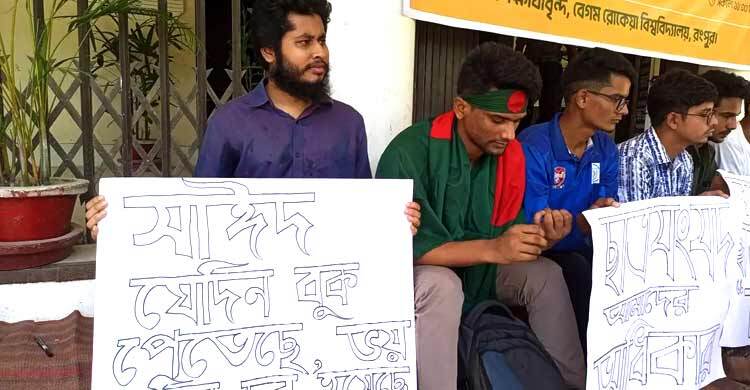 ১১:০০
শিক্ষার্থীবৃন্দ, বেগম রোকেয়া বিশ্ববিদ্যালয়, রংপুর।
সাঈদ
যেদিন বুক
পেতেছে, ভয়
ছাত্রসংসদ
আমাদের
অধিকার